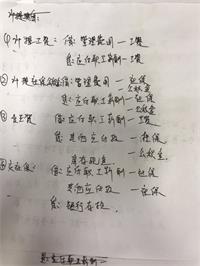 计提工资:
(1)计提工资: 借:管理费用—工资
贷:应付职工薪酬—工资
②计提社保公积金借:管理费用—社保
—公积金
贷:应付职工薪酬—社保
—公积金
③发工资 借:应付职工薪酬—工资
贷:其他应付款—社保
—公积金
库存现金
④交社保: 借:应付职工薪酬—社保
其他应付款—社保
贷:银行存款
贷:应付职工薪酬—